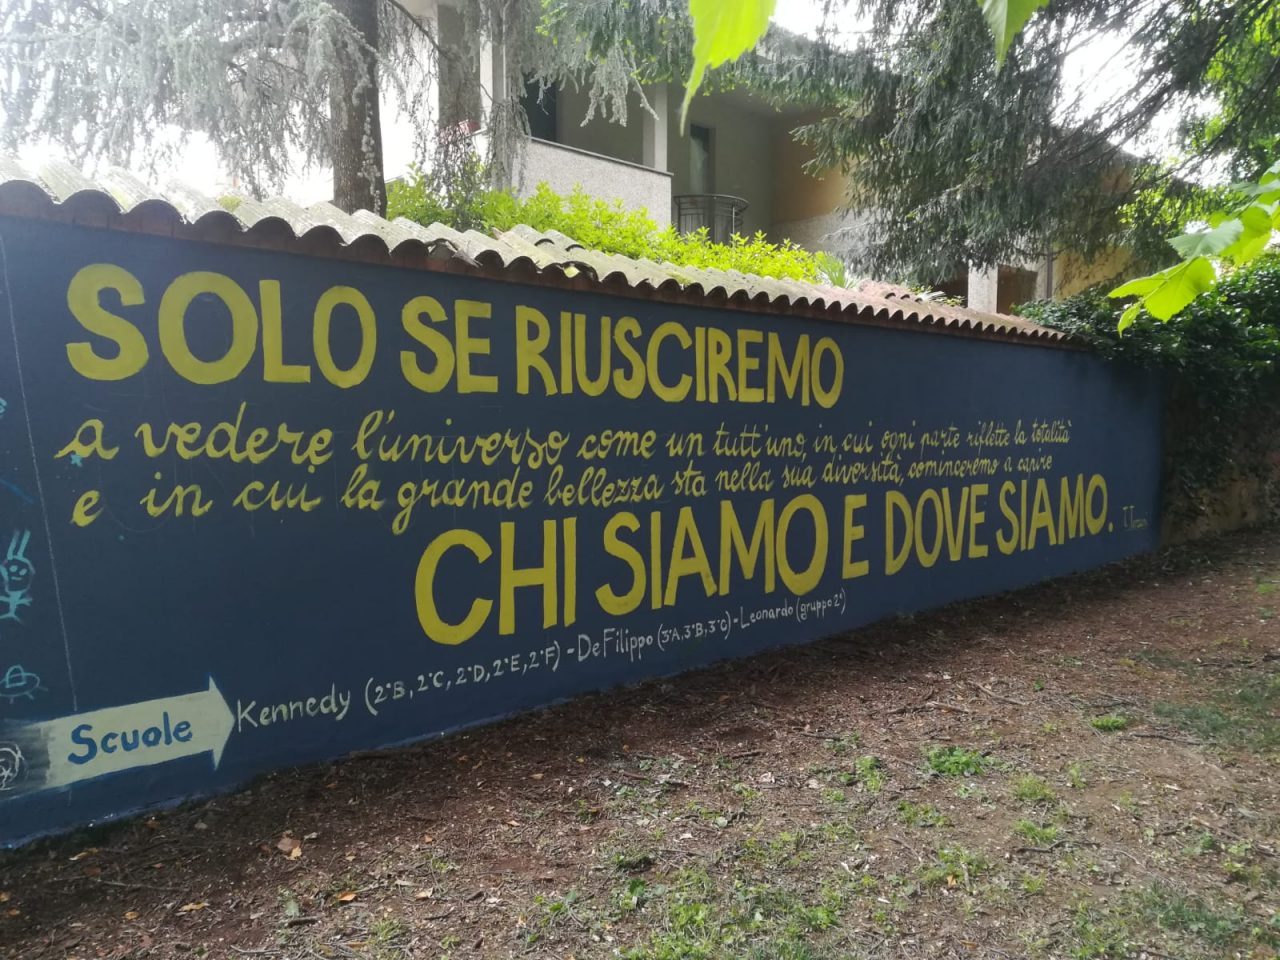 SOLO SE RIUSCIREMO
a vedere l'universo come un tutt'uno, in cui ogni parte riflette la totalità
e in cui la grande bellezza sta nella sua diversità, cominceremo a capire
CHI SIAMO E DOVE SIAMO.
T. Terzani
Scuole
Kennedy (2°B, 2°C, 2°D, 2°E, 2°F) - De Filippo (3°A, 3°B, 3°C) - Leonardo (gruppo 2°)